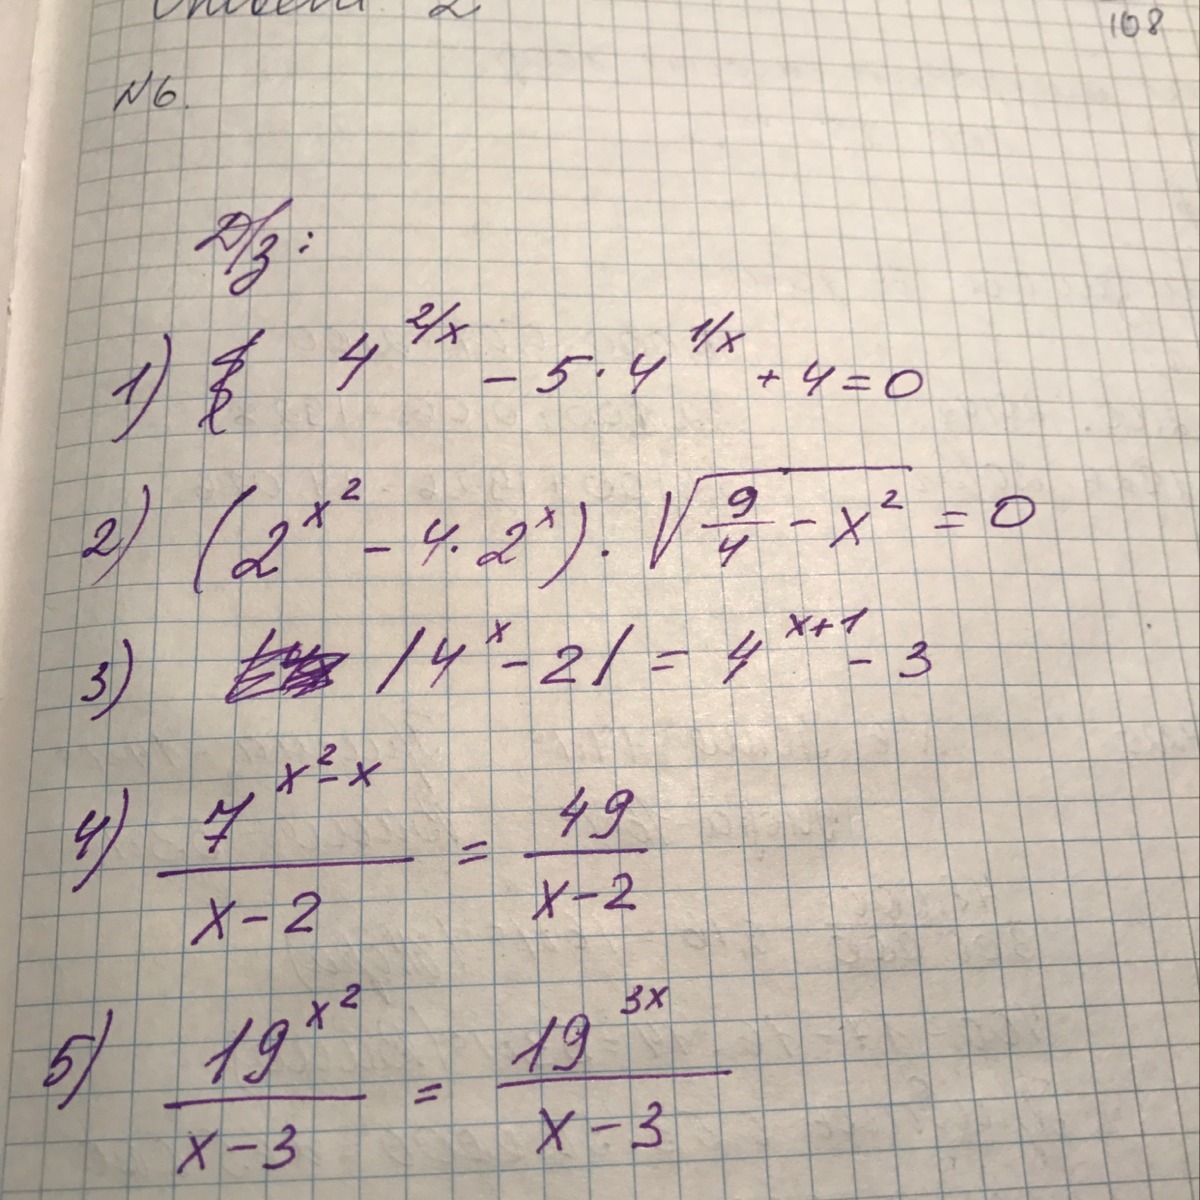 2
108
№6.
Д/з:
1) 4^{2/x} - 5·4^{1/x} + 4 = 0
2) (2^{x^2} - 4·2^x) · √(9/4 - x^2) = 0
3) |4^x - 2| = 4^{x+1} - 3
4) 7^{x^2-x} / (x-2) = 49 / (x-2)
5) 19^{x^2} / (x-3) = 19^{3x} / (x-3)